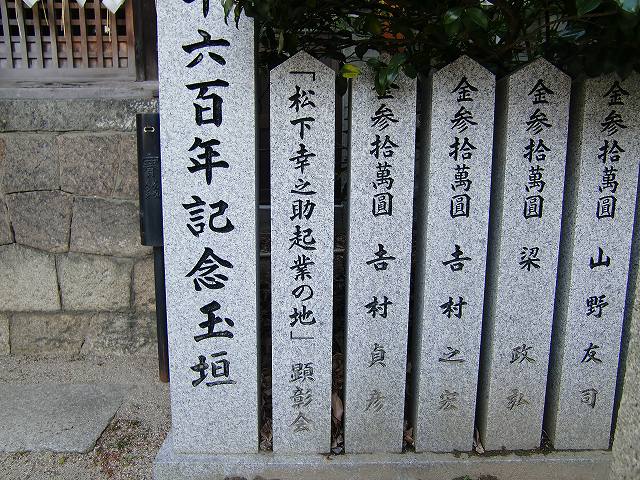 六百年記念玉垣
「松下幸之助起業の地」顕彰会
金参拾萬圓 𠮷村貞彦
金参拾萬圓 𠮷村之宏
金参拾萬圓 梁政弘
金参拾萬圓 山野友司